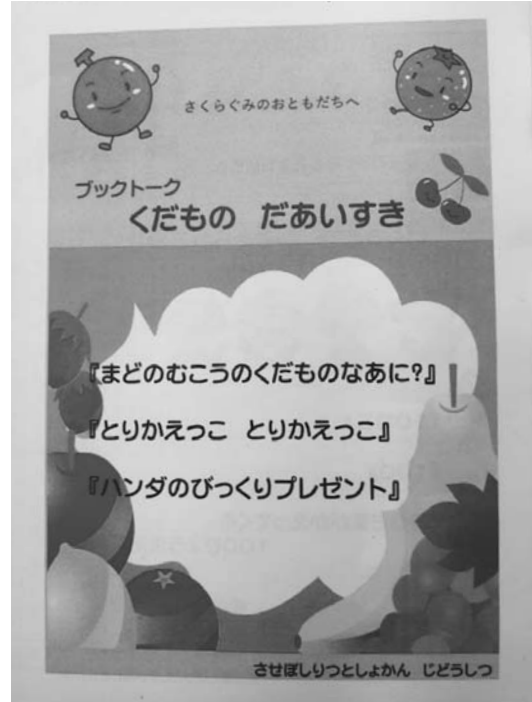 さくらぐみのおともだちへ
ブックトーク
くだもの だあいすき
『まどのむこうのくだものなあに?』
『とりかえっこ とりかえっこ』
『ハンダのびっくりプレゼント』
させぼしりつとしょかん じどうしつ